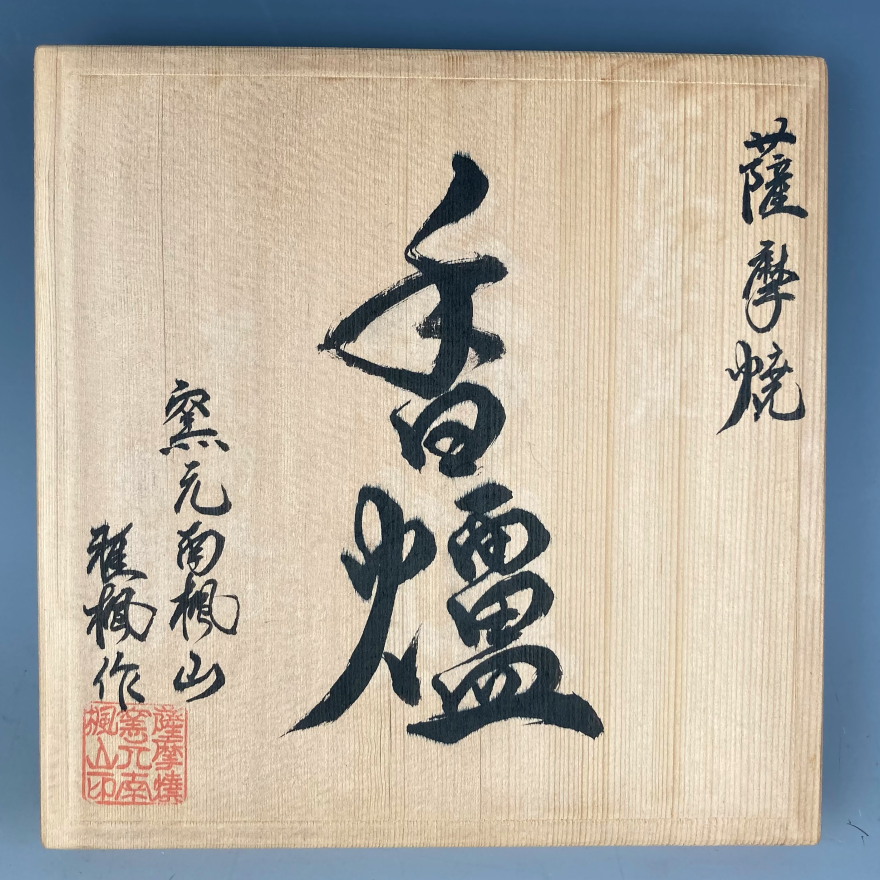 薩摩焼
香爐
窯元南楓山
雅楓作
薩摩焼
窯元南
楓山印